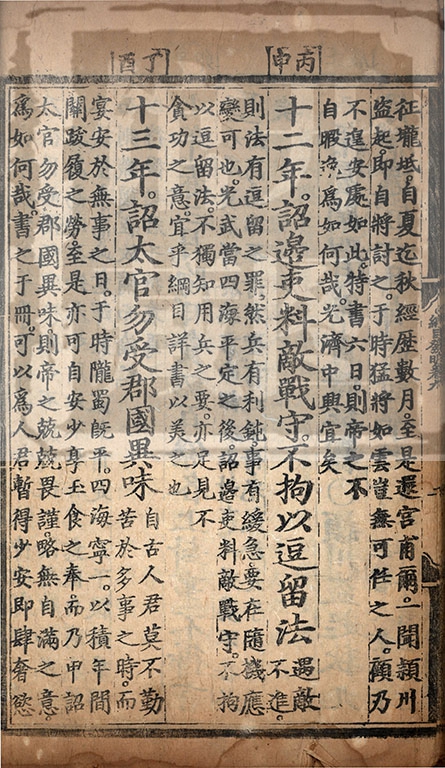 丙申
丁酉
征壠坻。自夏迄秋。經歷數月。至是還宮甫爾。一聞潁川
盜起。即自將討之。于時猛將如雲。豈無可任之人。顧乃
不遑安處如此。特書六日。則帝之不
自暇逸爲如何哉。光濟中興宜矣
十二年。詔邊吏料敵戰守。不拘以逗留法
遇敵
不進。
則法有逗留之罪。然兵有利鈍。事有緩急。要在隨機應
變可也。光武當四海平定之後。詔邊吏料敵戰守。不拘
以逗留法。不獨知用兵之要。亦足見不
貪功之意。宜乎綱目詳書以美之也
十三年。詔太官勿受郡國異味
自古人君莫不勤
苦於多事之時。而
宴安於無事之日。于時隴蜀旣平。四海寧一。以積年間
關跋履之勞。至是亦可自安。少享玉食之奉。而乃甲詔
太官勿受郡國異味。則帝之兢兢畏謹。略無自滿之意。
爲如何哉。書之于冊。可以爲人君暫得少安即肆奢慾